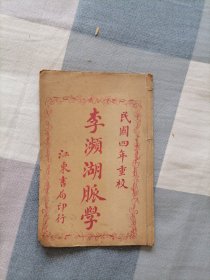 民國四年重校
李瀕湖脈學
江東書局印行